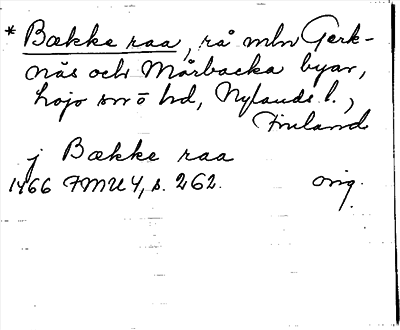 * Bække raa, rå mln Gerk-
näs och Mårbacka byar,
Lojo sn o hd, Nylands l.,
Finland
j Bække raa
1466 FMU 4, s. 262. orig.